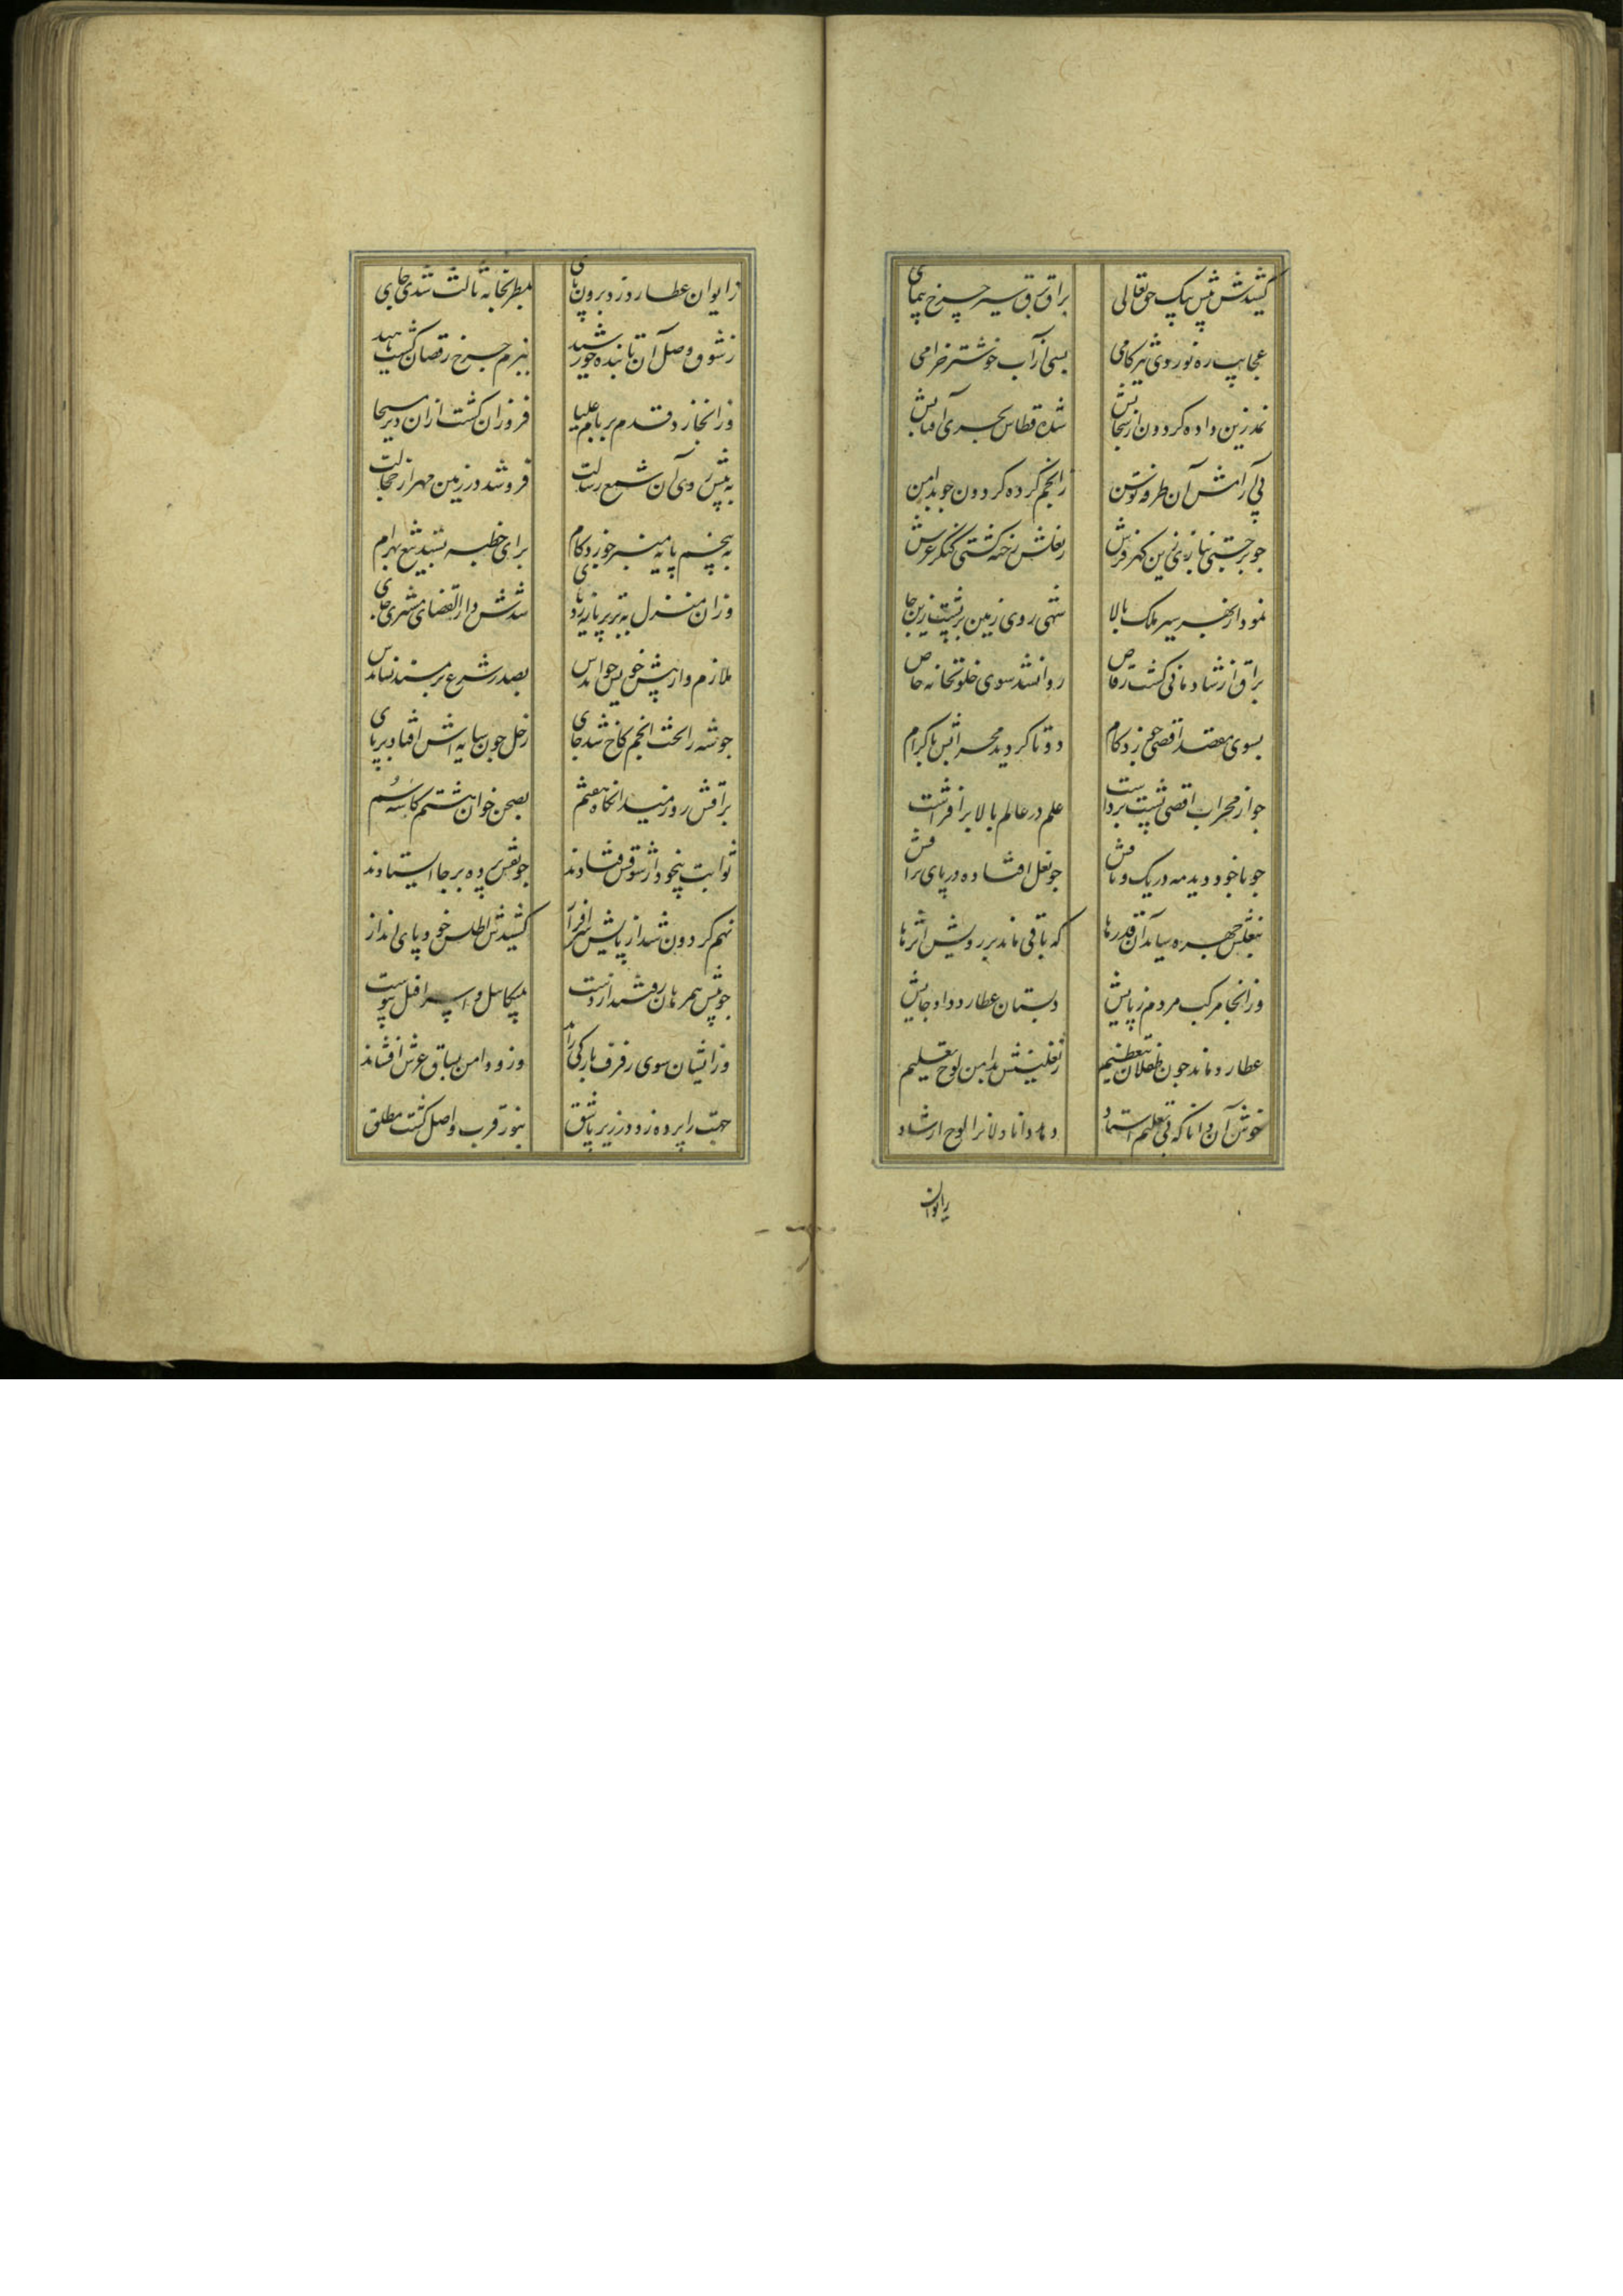 کشیدش پیش پیک حق تعالی براق برق سیر چرخ پیمای
عجایب ره نوردی تیزکامی بسی از آب خوشتر خرامی
نمد زین داده کردون از سحابش شده قطاس بحری آفتابش
پی آرامش آن طرفه توسن ز انجم کرده کردون جو بدامن
جو برجستی ببازی زین کهن فرش ز نعلش رخنه کشتی کنکر عرش
نمود از بهر سیر ملک بالا شهی روی زمین بر پشت زین جا
براق از شادمانی کشت رقاص روانشد سوی خلوتخانه خاص
بسوی مقصد اقصی جو زد کام دو تا کردید محرابش باکرام
جو از محراب اقصی پشت برداشت علم در عالم بالا برافراشت
جو با خود دید مه در یک وثاقش جو نعل افتاده در پای براقش
بنعلش چهره سایید آن قدرها که باقی ماند بر رویش اثرها
وز انجا مرکب مردم ربایش دبستان عطارد داد جایش
عطارد ماند جون طفلان بتعظیم ز نعلینش بدامن لوح تعلیم
خوش آن دانا که بی تعلیم استاد دهد دانادلانرا لوح ارشاد
ز ایوان
ز ایوان عطارد زد برون پای بطربخانه ثالث شدی جای
ز شوق وصل آن تابنده خورشید ببزم چرخ رقصان کشت ناهید
وز انجا زد قدم بر بام علیا فروزان کشت ازان دیر مسیحا
به پیش روی آن شمع رسالت فرو شد در زمین مهر از خجالت
به پنجم پایه منبر جو زد کام برای خطبه شد تیغ بهرام
وزان منزل به برتر پایه زد پای شدش دارالقضای مشتری جای
ملازم وار پیش خویش خواندش بصدر شرع بر مسند نشاندش
جو شه را تخت انجم کاخ شد جای زحل جون سایه اش افتاد بر پای
براقش زد ز میدانکاه هفتم بصحن خوان هشتم کاسه سم
ثوابت بیخود از شوقش فتادند جو نقش پرده بر جا ایستادند
نهم کردون شد از پایش سرافراز کشیدش اطلس خود پای انداز
جو پیش همرهان رفتند از دست بمیکاییل و اسرافیل پیوست
وزایشان سوی رفرف بارکی راند وزو دامن بساق عرش افشاند
جهت را پرده زد در زیر پا شق بنور قرب واصل کشت مطلق